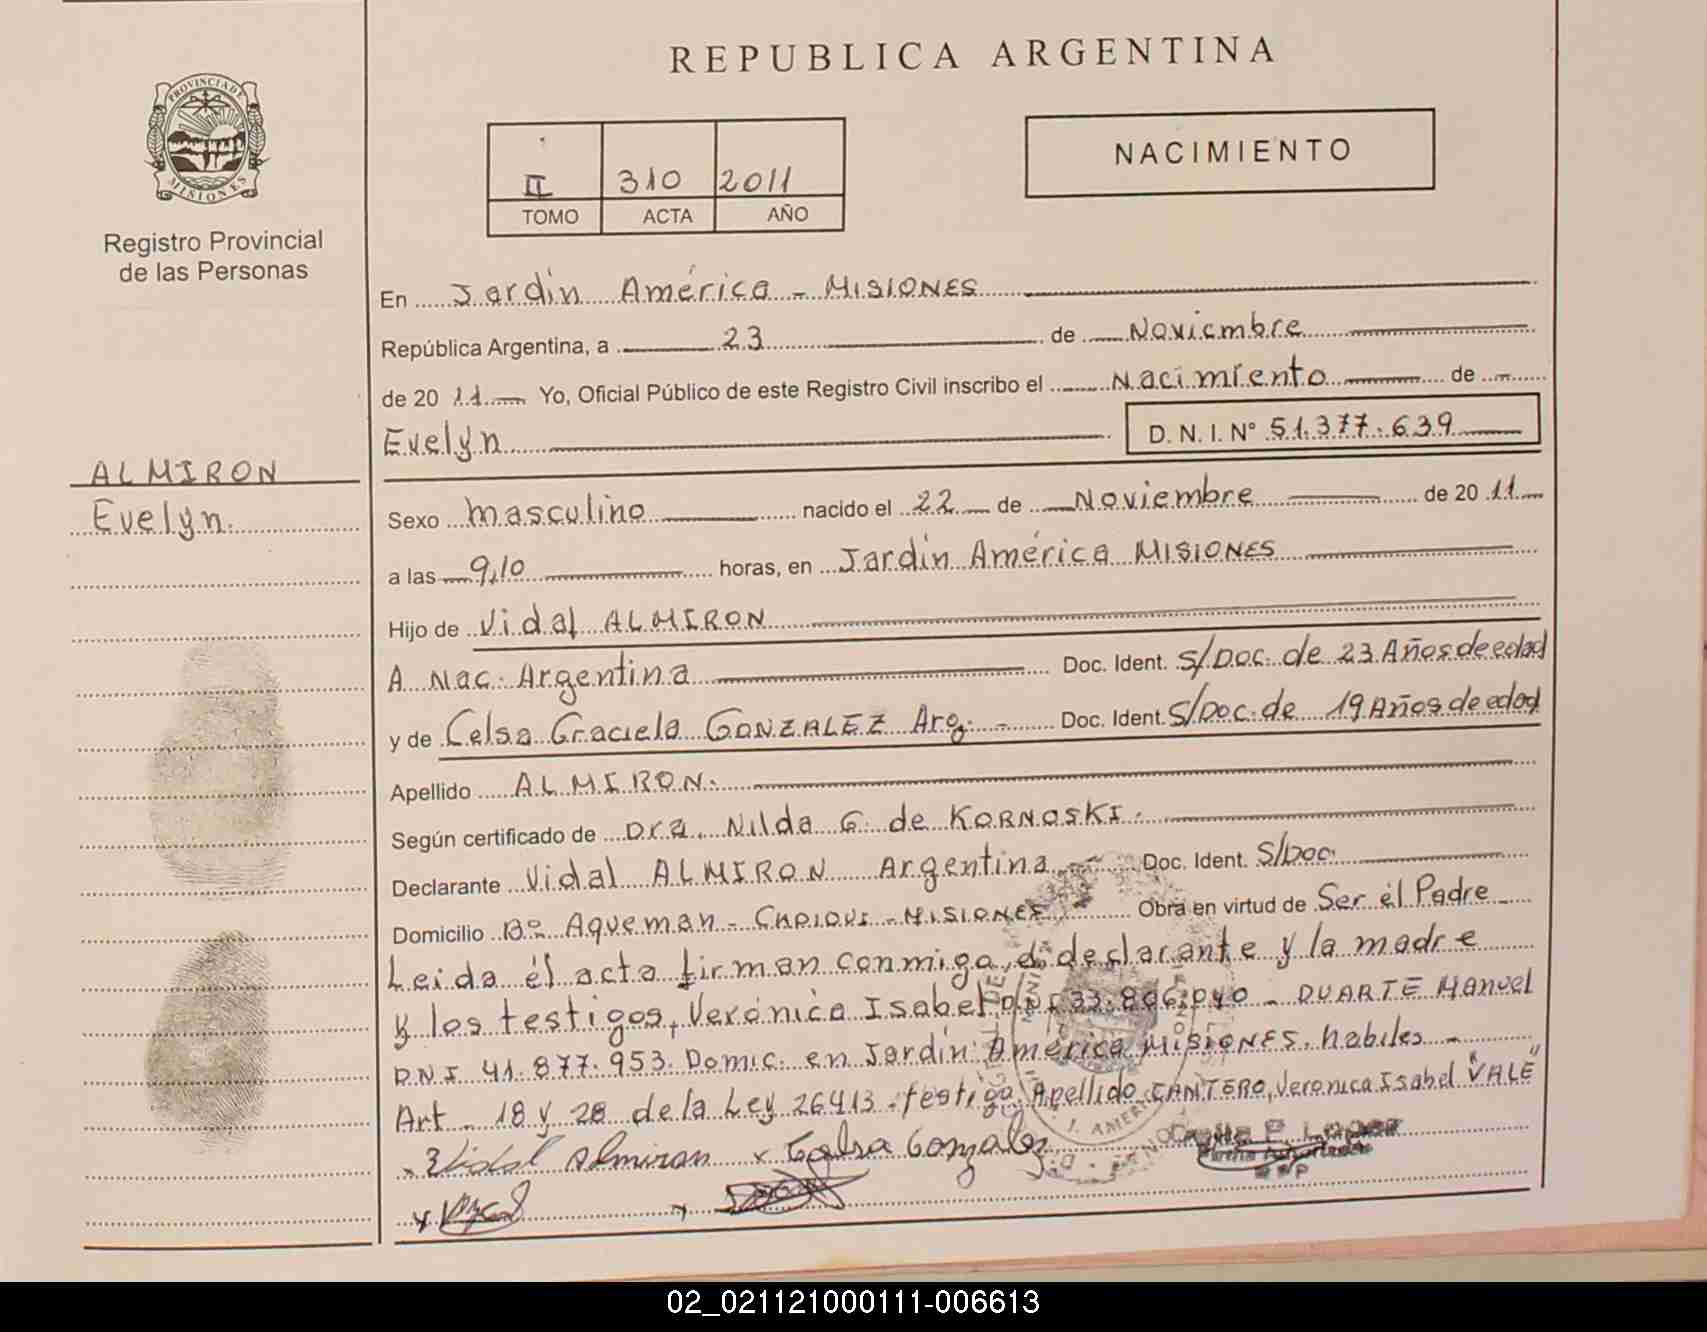 REPUBLICA ARGENTINA
PROVINCIA DE
MISIONES
Registro Provincial
de las Personas
II 310 2011
TOMO ACTA AÑO
NACIMIENTO
En Jardín América - MISIONES
República Argentina, a 23 de Noviembre
de 20 11 Yo, Oficial Público de este Registro Civil inscribo el Nacimiento de
Evelyn D. N. I. N° 51.377.639
ALMIRON
Evelyn.
Sexo masculino nacido el 22 de Noviembre de 20 11
a las 9,10 horas, en Jardín América MISIONES
Hijo de Vidal ALMIRON
A Nac. Argentina Doc. Ident. S/Doc. de 23 Años de edad
y de Celsa Graciela GONZALEZ Arg. - Doc. Ident. S/Doc. de 19 Años de edad
Apellido ALMIRON.
Según certificado de Dra. Nilda G. de KORNOSKI.
Declarante Vidal ALMIRON Argentina Doc. Ident. S/Doc.
Domicilio Bº Aqueman - - MISIONES Obra en virtud de Ser él Padre
Leida él acta firman conmigo, el declarante y la madre
y los testigos, Verónica Isabel DNI 33.806.040 - DUARTE Manuel
DNI 41.877.953. Domic. en Jardín América MISIONES. habiles -
Art - 18 y 28 de la Ley 26413. testigo. Apellido CANTERO, Veronica Isabel "VALE"
x Vidal Almiron x Celsa Gonzales
J. AMERI
Lopez
02_021121000111-006613